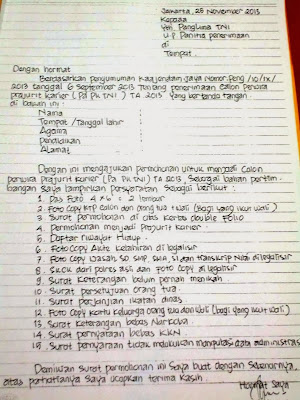 Jakarta, 25 November 2013
Kepada
Yth. Panglima TNI
U.p Panitia penerimaan
di
Tempat.
Dengan hormat
Berdasarkan pengumuman Kaajendam Jaya Nomor Peng /10/IX/
2013 tanggal 6 September 2013 tentang penerimaan Calon Perwira
Prajurit Karier (Pa PK TNI) TA 2013 Yang bertanda tangan
di bawah ini :
Nama :
Tempat /Tanggal lahir :
Agama :
Pendidikan :
Alamat :
Dengan ini mengajukan permohonan untuk menjadi Calon
perwira prajurit Karier (Pa PK TNI) TA 2013, Sebagai bahan pertim-
bangan Saya lampirkan persyaratan Sebagai berikut :
1. Pas Foto 4 x 6 = 2 lembar
2. Foto Copy KTP Calon dan orang tua / wali (Bagi yang ikut wali)
3. Surat permohonan di atas kertas double folio
4. Permohonan menjadi prajurit Karier
5. Daftar riwayat Hidup
6. Foto Copy Akte Kelahiran di legalisir
7. Foto Copy Ijasah, SD SMP SMA, S1 dan transkrip Nilai di legalisir
8. SKCK dari polres asli dan Foto Copy di legalisir
9. Surat Keterangan belum pernah menikah
10. Surat persetujuan orang tua
11. Surat perjanjian ikatan dinas
12. Foto Copy Kartu Keluarga orang tua dan wali (bagi yang ikut wali)
13. Surat Keterangan bebas Narkoba
14. Surat pernyataan bebas KKN
15. Surat pernyataan tidak melakukan manipulasi data administrasi
Demikian Surat permohonan ini Saya buat dengan Sebenarnya,
atas perhatiannya Saya ucapkan terima Kasih
Hormat Saya